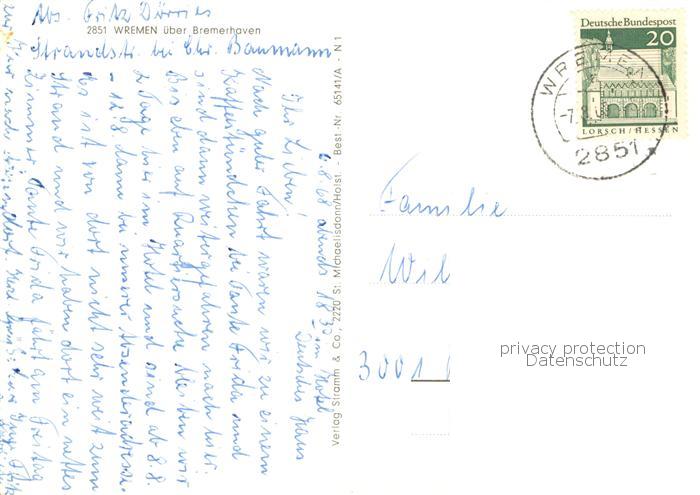 Abs. Fritz Dörries
2851 WREMEN über Bremerhaven
Strandstr. bei Chr. Baumann
6.8.68 abends 18³⁰ im Hotel
Deutsches Haus
Ihr Lieben!
Nach guter Fahrt waren wir zu einem
Kaffeestündchen bei Tante Frida und
sind dann weitergefahren nach hier.
Bis eben auf Quartiersuche bleiben wir
2 Tage hier im Hotel und sind ab 8.8.
- 12.8. dann bei unserer Absenderadresse.
Es ist von dort nicht sehr weit zum
Strand und wir haben dort ein nettes
Zimmer. Tante Frida fährt am Freitag
Verlag Stramm & Co., 2220 St. Michaelisdonn/Holst. - Best.-Nr. 65141/A - N1
Deutsche Bundespost
20
LORSCH/HESSEN
WREMEN
-7.8.
2851
Familie
Wil
3001
privacy protection
Datenschutz